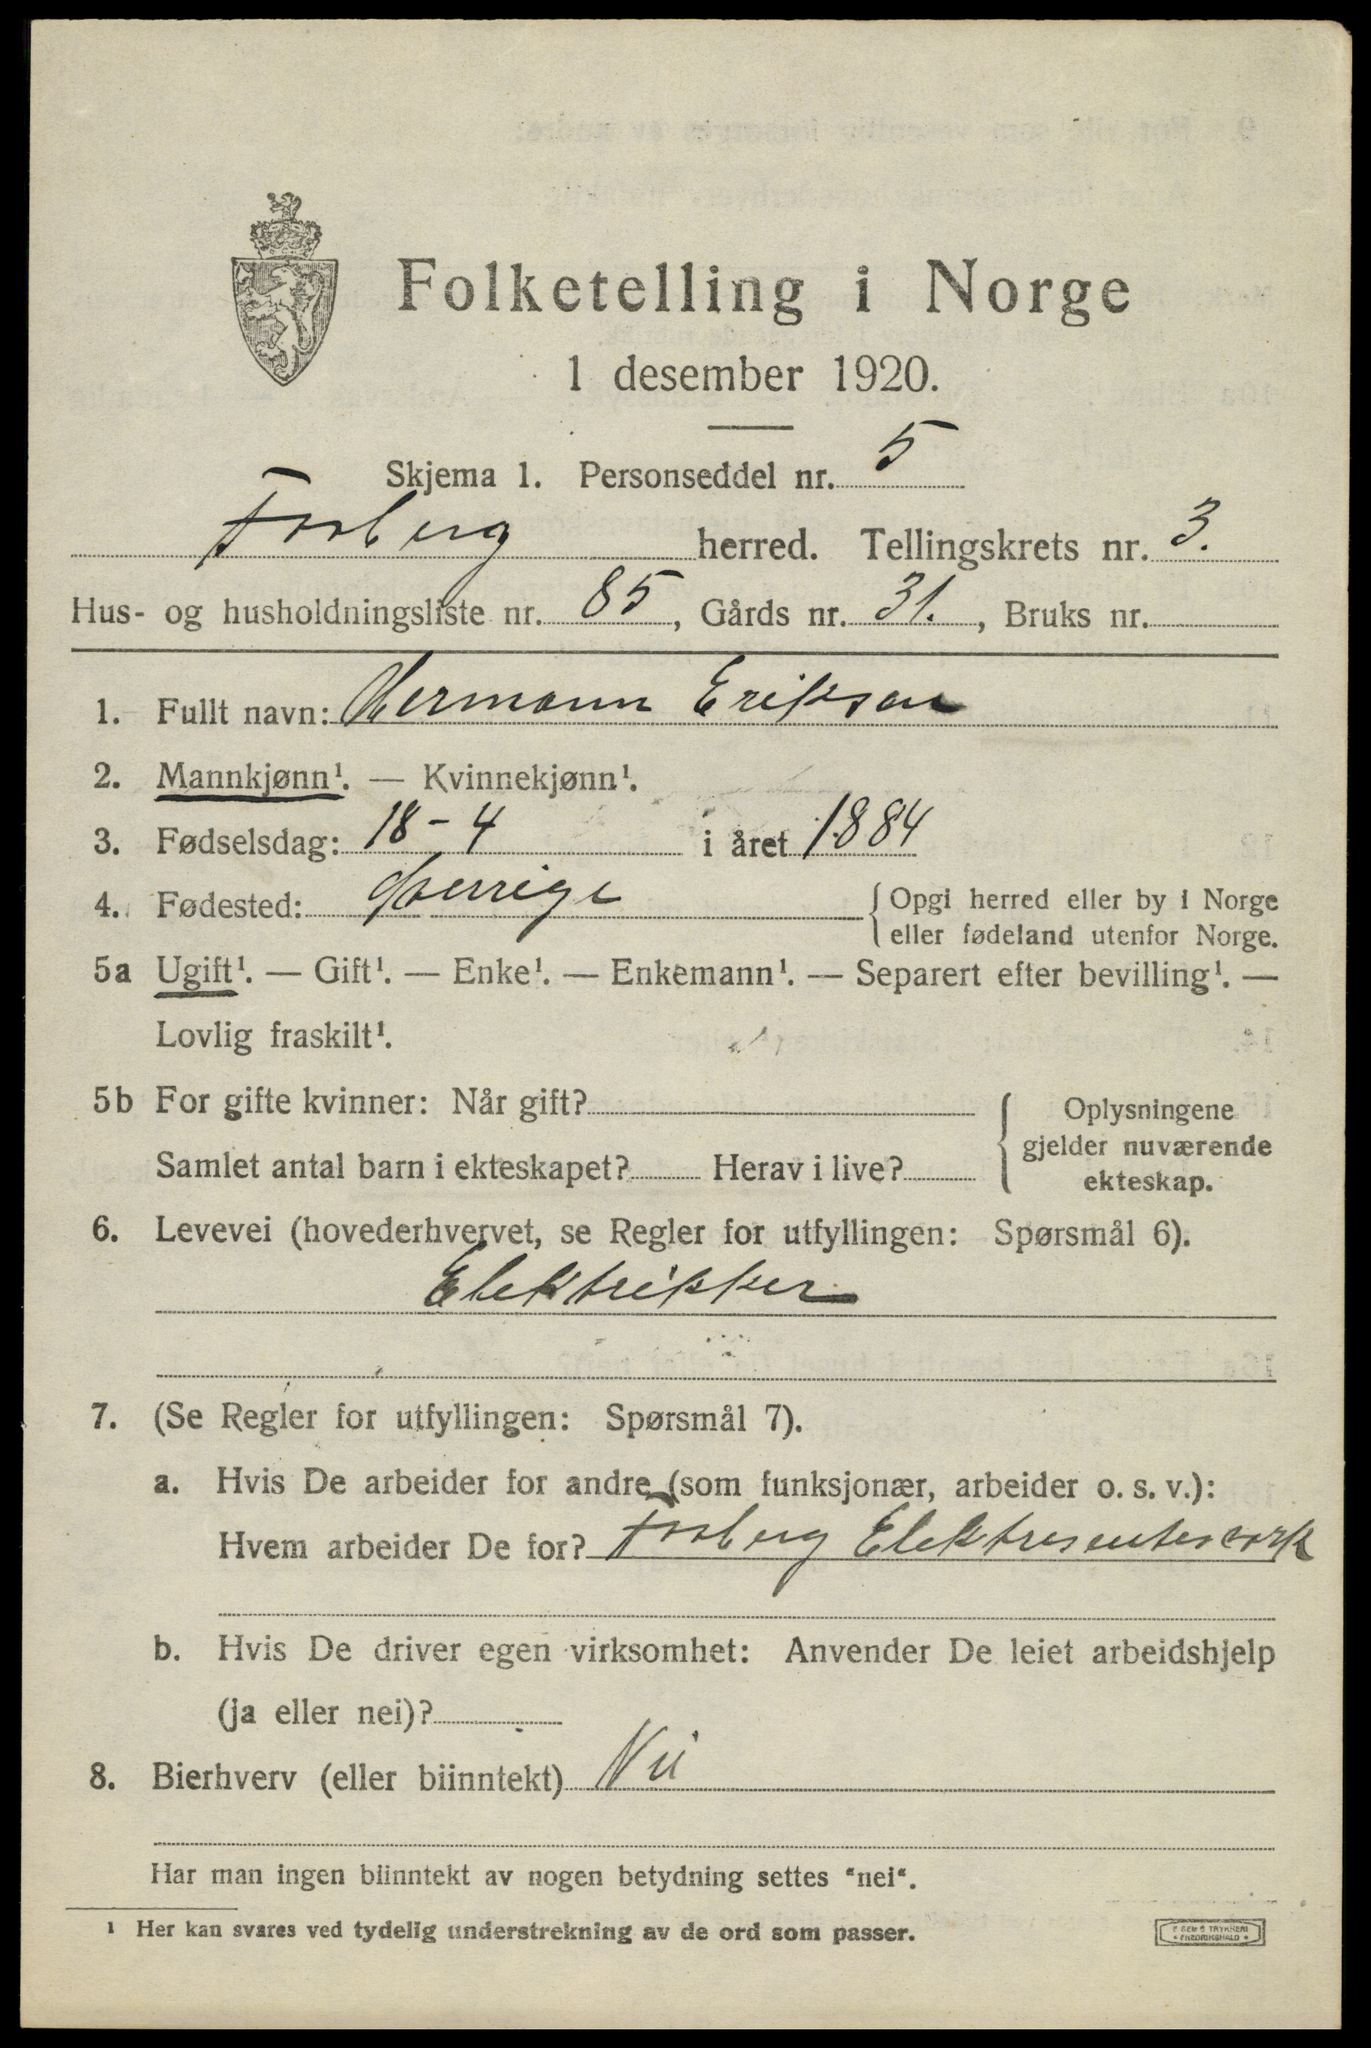 Folketelling i Norge
1 desember 1920.
Skjema 1. Personseddel nr. 5
Torsberg herred. Tellingskrets nr. 3.
Hus- og husholdningsliste nr. 85, Gårds nr. 31., Bruks nr.
1. Fullt navn: Hermann Erikson
2. Mannkjønn¹. — Kvinnekjønn¹.
3. Fødselsdag: 18-4 i året 1884
4. Fødested: Sverrige { Opgi herred eller by i Norge
eller fødeland utenfor Norge.
5a Ugift¹. — Gift¹. — Enke¹. — Enkemann¹. — Separert efter bevilling¹. —
Lovlig fraskilt¹.
5b For gifte kvinner: Når gift? { Oplysningene
gjelder nuværende
Samlet antal barn i ekteskapet? Herav i live? ekteskap.
6. Levevei (hovederhvervet, se Regler for utfyllingen: Spørsmål 6).
Elektrikker
7. (Se Regler for utfyllingen: Spørsmål 7).
a. Hvis De arbeider for andre (som funksjonær, arbeider o. s. v.):
Hvem arbeider De for? Elektresentesverk
b. Hvis De driver egen virksomhet: Anvender De leiet arbeidshjelp
(ja eller nei)?
8. Bierhverv (eller biinntekt) Nei
Har man ingen biinntekt av nogen betydning settes "nei".
¹ Her kan svares ved tydelig understrekning av de ord som passer.